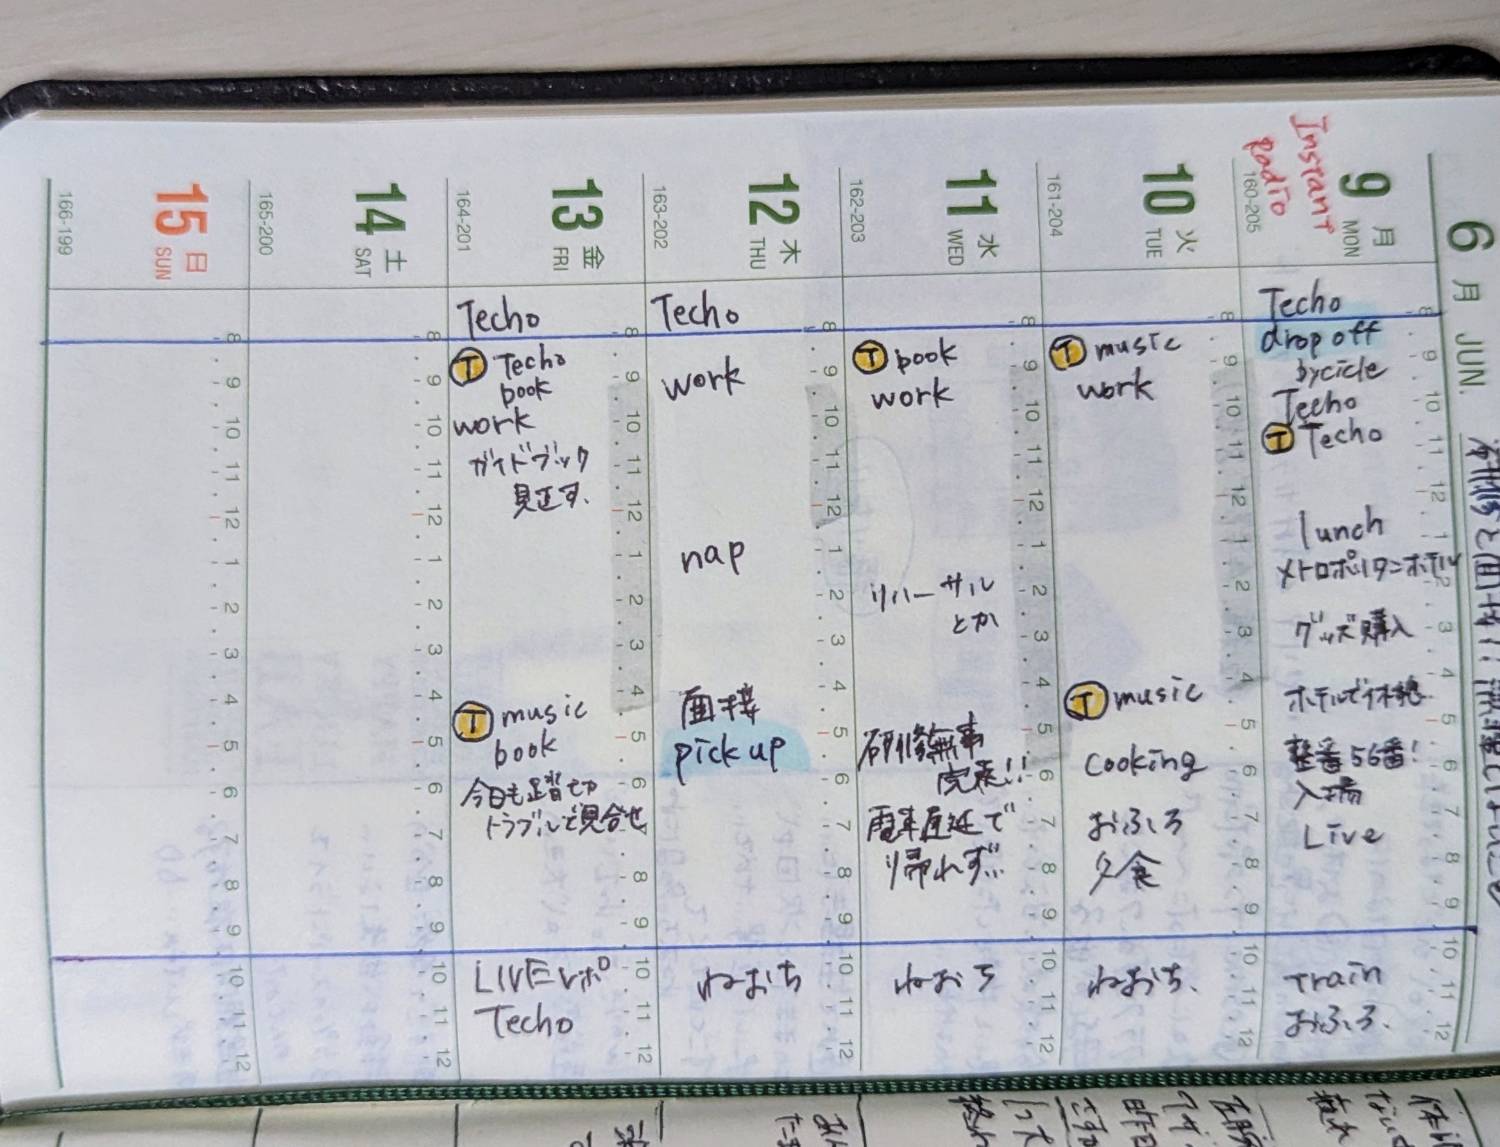 6 月 JUN.
9 月 MON
160-205
Instant
Radio
Techo
drop off
bycicle
Techo
T Techo
lunch
メトロポリタンホテル
グッズ購入
ホテルで休憩
整番56番!
入場
Live
Train
おふろ.
10 火 TUE
161-204
T music
work
T music
cooking
おふろ
夕食
ねおち.
11 水 WED
162-203
T book
work
リハーサル
とか
研修無事
完走!!
電車遅延で
帰れず…
ねおち
12 木 THU
163-202
Techo
work
nap
面接
pick up
ねおち
13 金 FRI
164-201
Techo
T Techo
book
work
ガイドブック
見直す.
T music
book
今日も踏切
トラブルで見合せ
LIVEレポ
Techo
14 土 SAT
165-200
15 日 SUN
166-199
8
9
10
11
12
1
2
3
4
5
6
7
8
9
10
11
12